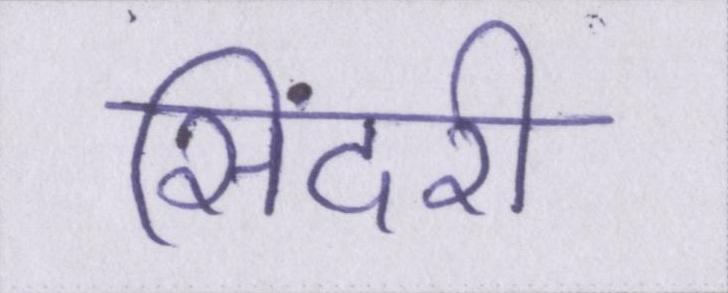 सिंदरी